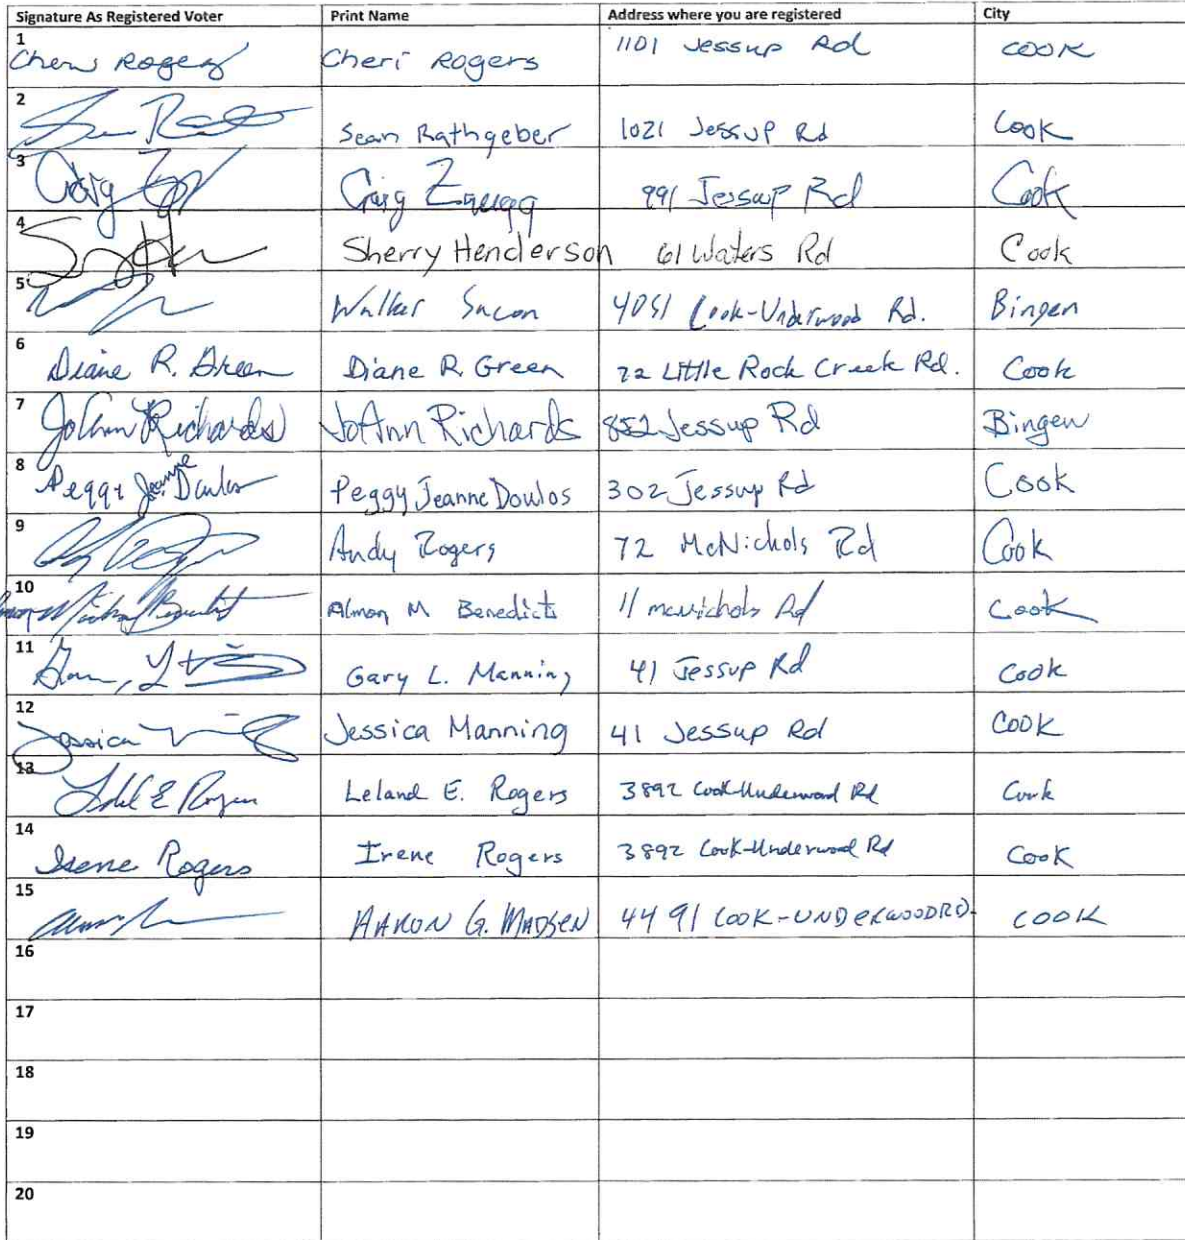 Signature As Registered Voter Print Name Address where you are registered City
1 Cheri Rogers Cheri Rogers 1101 Jessup Rd COOK
2 Sean Rathgeber 1021 Jessup Rd Cook
3 Craig Craig Zuegg 991 Jessup Rd Cook
4 Sherry Henderson 61 Waters Rd Cook
5 Walker Sacon 4051 Cook-Underwood Rd. Bingen
6 Diane R. Green Diane R. Green 22 Little Rock Creek Rd. Cook
7 JoAnn Richards JoAnn Richards 852 Jessup Rd Bingen
8 Peggy Jeanne Doulos Peggy Jeanne Doulos 302 Jessup Rd Cook
9 Andy Rogers 72 McNichols Rd Cook
10 Almon Michael Benedict Almon M Benedict 11 mcnichols Rd Cook
11 Gary L Gary L. Manning 41 Jessup Rd Cook
12 Jessica Jessica Manning 41 Jessup Rd COOK
13 Leland E Rogers Leland E. Rogers 3892 Cook-Underwood Rd Cook
14 Irene Rogers Irene Rogers 3892 Cook-Underwood Rd Cook
15 AARON G. MADSEN 4491 COOK-UNDERWOOD RD. COOK
16
17
18
19
20